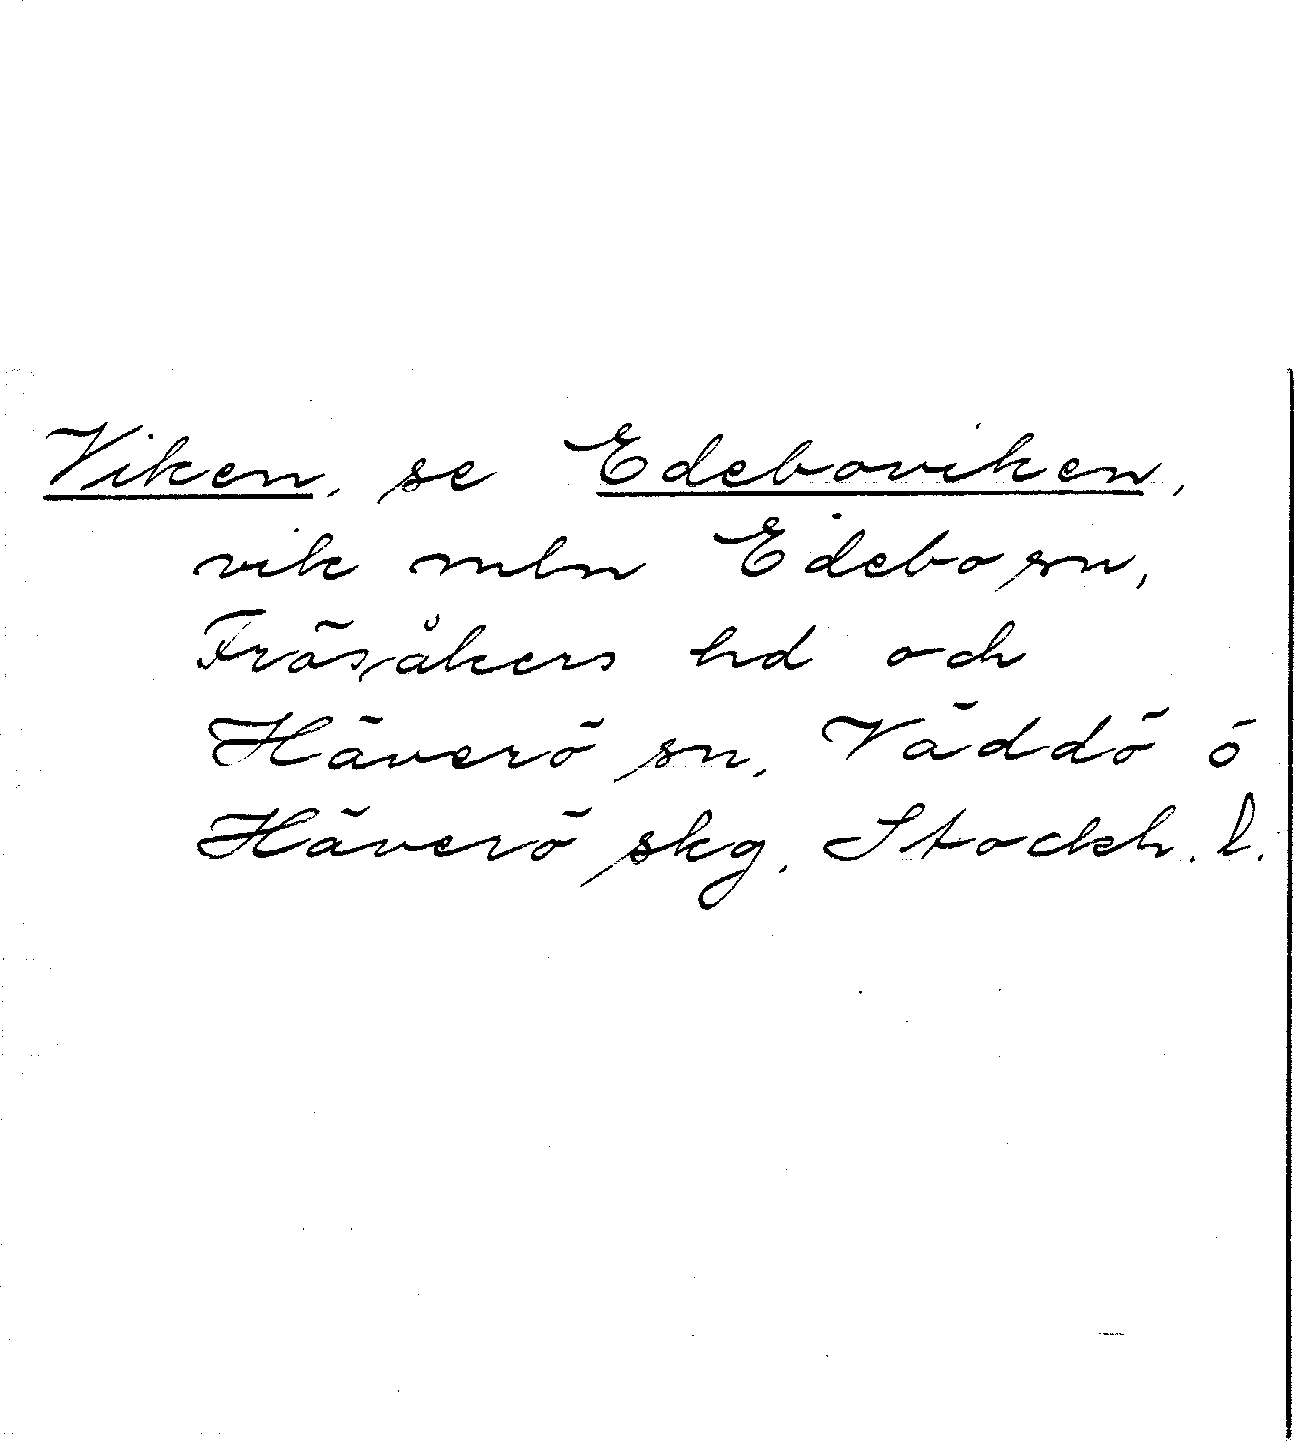 Viken, se Edeboviken,
vik mln Edebo sn,
Frösåkers hd och
Häverö sn, Väddö o
Häverö skg, Stockh. l.